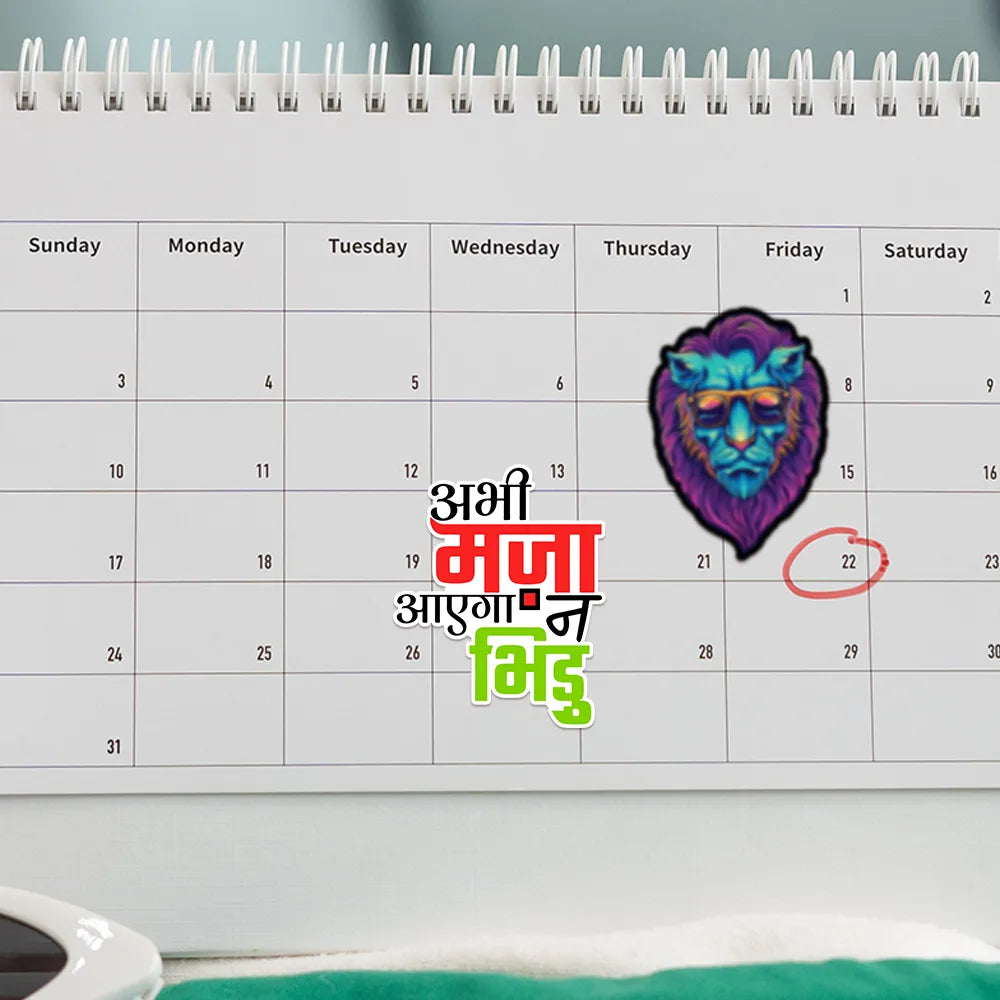 Sunday Monday Tuesday Wednesday Thursday Friday Saturday
1 2
3 4 5 6 8 9
10 11 12 13 15 16
अभी
मज़ा
17 18 19 21 22 23
आएगा न
भिडु
24 25 26 28 29 30
31